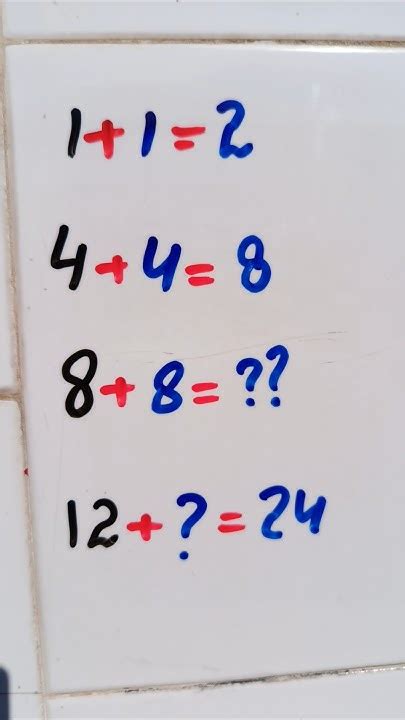 1+1=2
4+4=8
8+8=??
12+?=24